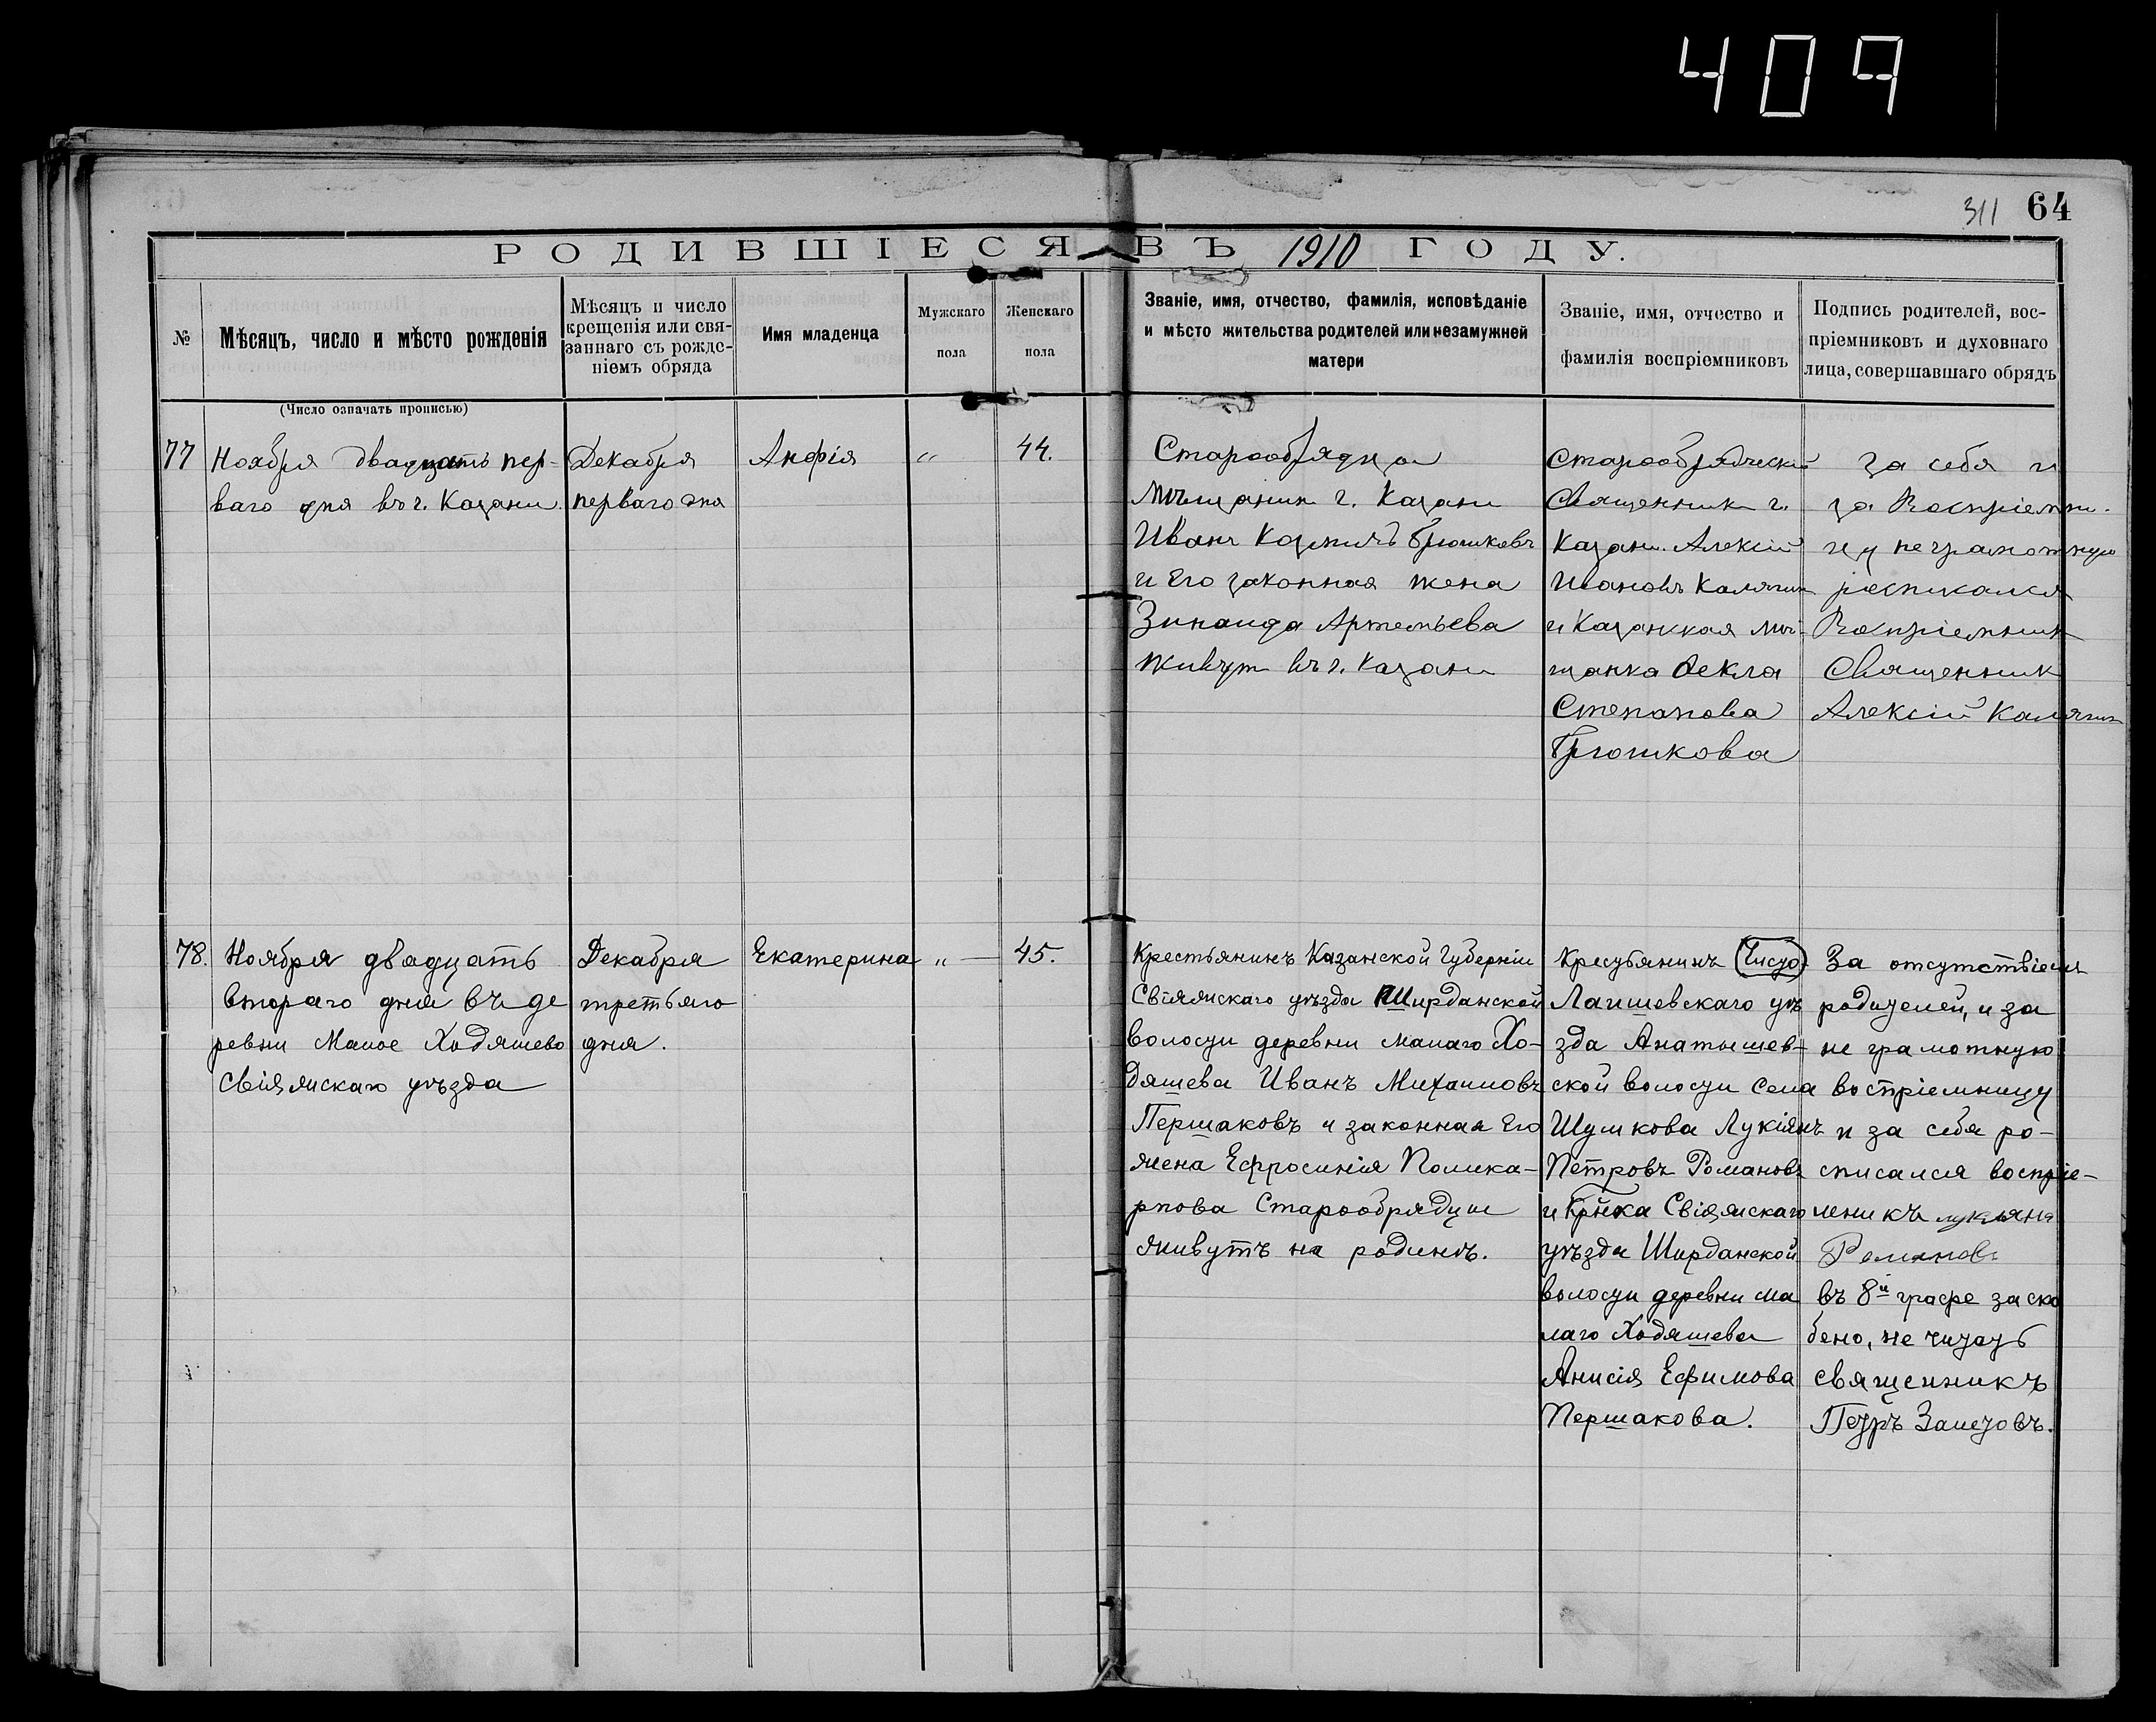 409
311 64
РОДИВШІЕСЯ ВЪ 1910 ГОДУ.
№
Мѣсяцъ, число и мѣсто рожденія
Мѣсяцъ и число
крещенія или свя-
заннаго съ рожде-
ніемъ обряда
Имя младенца
Мужскаго
пола
Женскаго
пола
Званіе, имя, отчество, фамилія, исповѣданіе
и мѣсто жительства родителей или незамужней
матери
Званіе, имя, отчество и
фамилія воспріемниковъ
Подпись родителей, вос-
пріемниковъ и духовнаго
лица, совершавшаго обрядъ
(Число означать прописью)
77
Ноября двадцать пер-
ваго дня въ г. Казани
Декабря
перваго дня
Анфія
"
44.
Старообрядцы
мѣщанин г. Казани
Иванъ Козмичъ Брюшковъ
и Его законная жена
Зинаида Артемьева
живут въ г. Казани
Старообрядческій
Священник г.
Казани. Алексій
Ивановъ Калягин
и Казанская мѣ-
щанка Фекла
Степанова
Брюшкова
За себя и
за Воспріемни-
цу неграмотную
росписался
Воспріемник
Священник
Алексій Калягин
78.
Ноября двадцать
втораго дня въ де
ревни Малое Ходяшево
Свіяжскаго уѣзда
Декабря
третьяго
дня.
Екатерина
" —
45.
Крестьянинъ Казанской Губерніи
Свіяжскаго уѣзда Ширданской
волости деревни малаго Хо-
дяшева Иванъ Михаиловъ
Першаковъ и законная Его
жена Ефросинія Полика-
рпова Старообрядцы
живутъ на родинѣ.
Крестьянинъ Чисто
Лаишевскаго уѣ
зда Анатышев-
ской волости села
Шумкова Лукіянъ
Петровъ Романовъ
и Кр̃нка Свіяжскаго
уѣзда Ширданской
волости деревни ма
лаго Ходяшева
Анисія Ефимова
Першакова.
За отсутствіемъ
родителей, и за
не грамотную
воспріемницу
и за себя ро-
списался воспріе-
меникъ лукиянъ
Романовъ
въ 8й графе заско
бено, не читать
священникъ
Петръ Залетовъ.